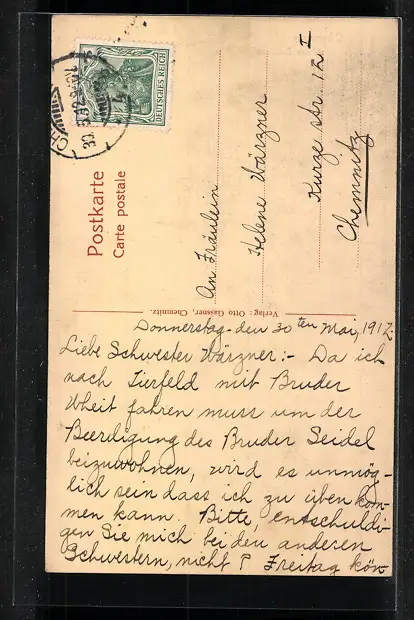 DEUTSCHES REICH
Postkarte
Carte postale
An Fräulein
Helene Wärzner
Kurze str. 12 I
Chemnitz
Verlag: Otto Gassner, Chemnitz.
Donnerstag - den 30ten Mai, 1912.
Liebe Schwester Wärzner:- Da ich
nach Tierfeld mit Bruder
Wheit fahren muss um der
Beerdigung des Bruder Seidel
beizuwohnen, wird es unmög-
lich sein dass ich zu üben kom-
men kann. Bitte, entschuldi-
gen Sie mich bei den anderen
Schwestern, nicht? Freitag kön